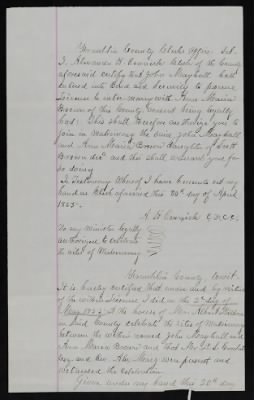 Franklin County Clerks Office. Sct.
I. Alexander H. Clerk of the County
aforesaid certify that John Mayhall hath
entered into Bond and Security to procure
License to inter marry with Ann Maria
Brown of this County Consent being legally
had: This shall therefore authorize you to
join in Matrimony the said John Mayhall
and Ann Maria Brown daughter of Scott
Brown decd and this shall warrant you for
so doing
In Testimony Whereof I have hereunto set my
hand as Clerk aforesaid this 20th day of April
A. H. C.F.C.C.
To any Minister legally
authorized to celebrate
the rites of Matrimony
Franklin County Court.
It is hereby certified that under and by virtue
of the within License I did on the 2nd day of
May at the house of Mr
in said County celebrate the rites of Matrimony
between the within named John Mayhall and
Ann Maria Brown and that Mr
and were present and
witnessed the celebration
Given under my hand this 20th day